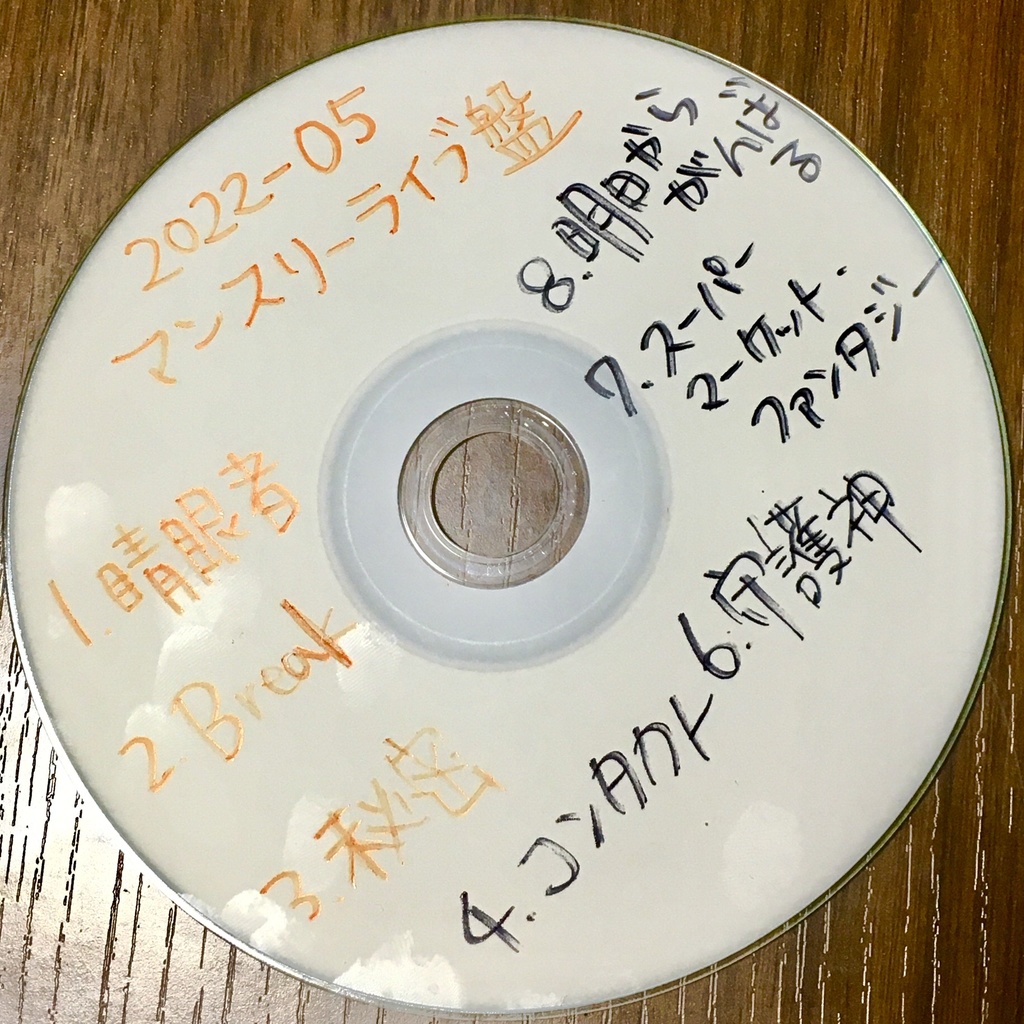 2022-05
マンスリーライブ盤
1.晴眼者
2.Break
3.秘密
4.コンタクト
6.守護神
7.スーパー
マーケット・
ファンタジー
8.明日から
がんばる